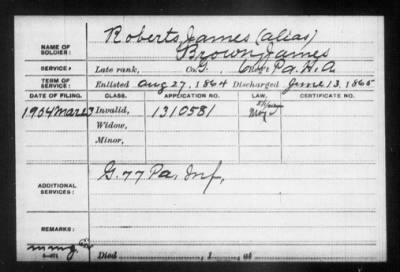 NAME OF SOLDIER: Roberts, James (alias)
Brown, James
SERVICE: Late rank, Co. G, 6 Reg't Pa. H. A.
TERM OF SERVICE: Enlisted Aug 27, 1864 Discharged June 13, 1865
DATE OF FILING. CLASS. APPLICATION NO. LAW. CERTIFICATE NO.
1904 Mar 23 Invalid, 1310581
Widow,
Minor,
ADDITIONAL SERVICES: G. 77 Pa. Inf,
REMARKS:
Died , 1 , at